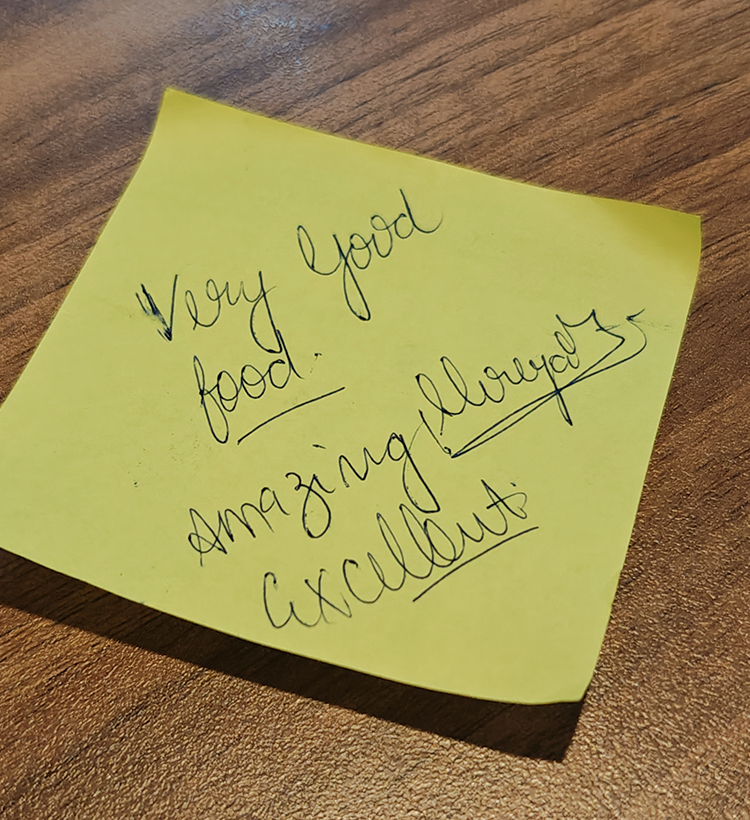 Very Good
food.
Amazing,
Excellent.